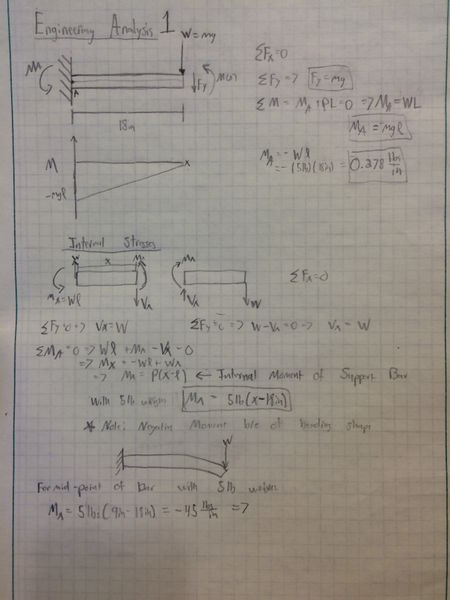 Engineering Analysis 1
W = mg
ΣFx=0
M(x)
Fy
ΣFy => Fy = mg
A
ΣM = MA + PL = 0 => MA = WL
18in
MA = -mgl
M
x
MA = -Wl
= -(5lb)(18in) = 0.278 lbs/in
-mgl
Internal Stresses
x
Mx
ΣFx=0
MA=Wl
Vx
W
ΣFy=0 => Vx=W
ΣFy=0 => W-Vx=0 -> Vx = W
ΣMA=0 => Wl + Mx - Vx = 0
=> Mx = -Wl + Wx
=> Mx = P(x-l) ← Internal Moment of Support Bar
with 5lb MA = 5lb(x-18in)
* Note: Negative Moment b/c of bending shape
W
For mid-point of bar with 5lb
MA = 5lbs(9in-18in) = -45 lbs/in =>